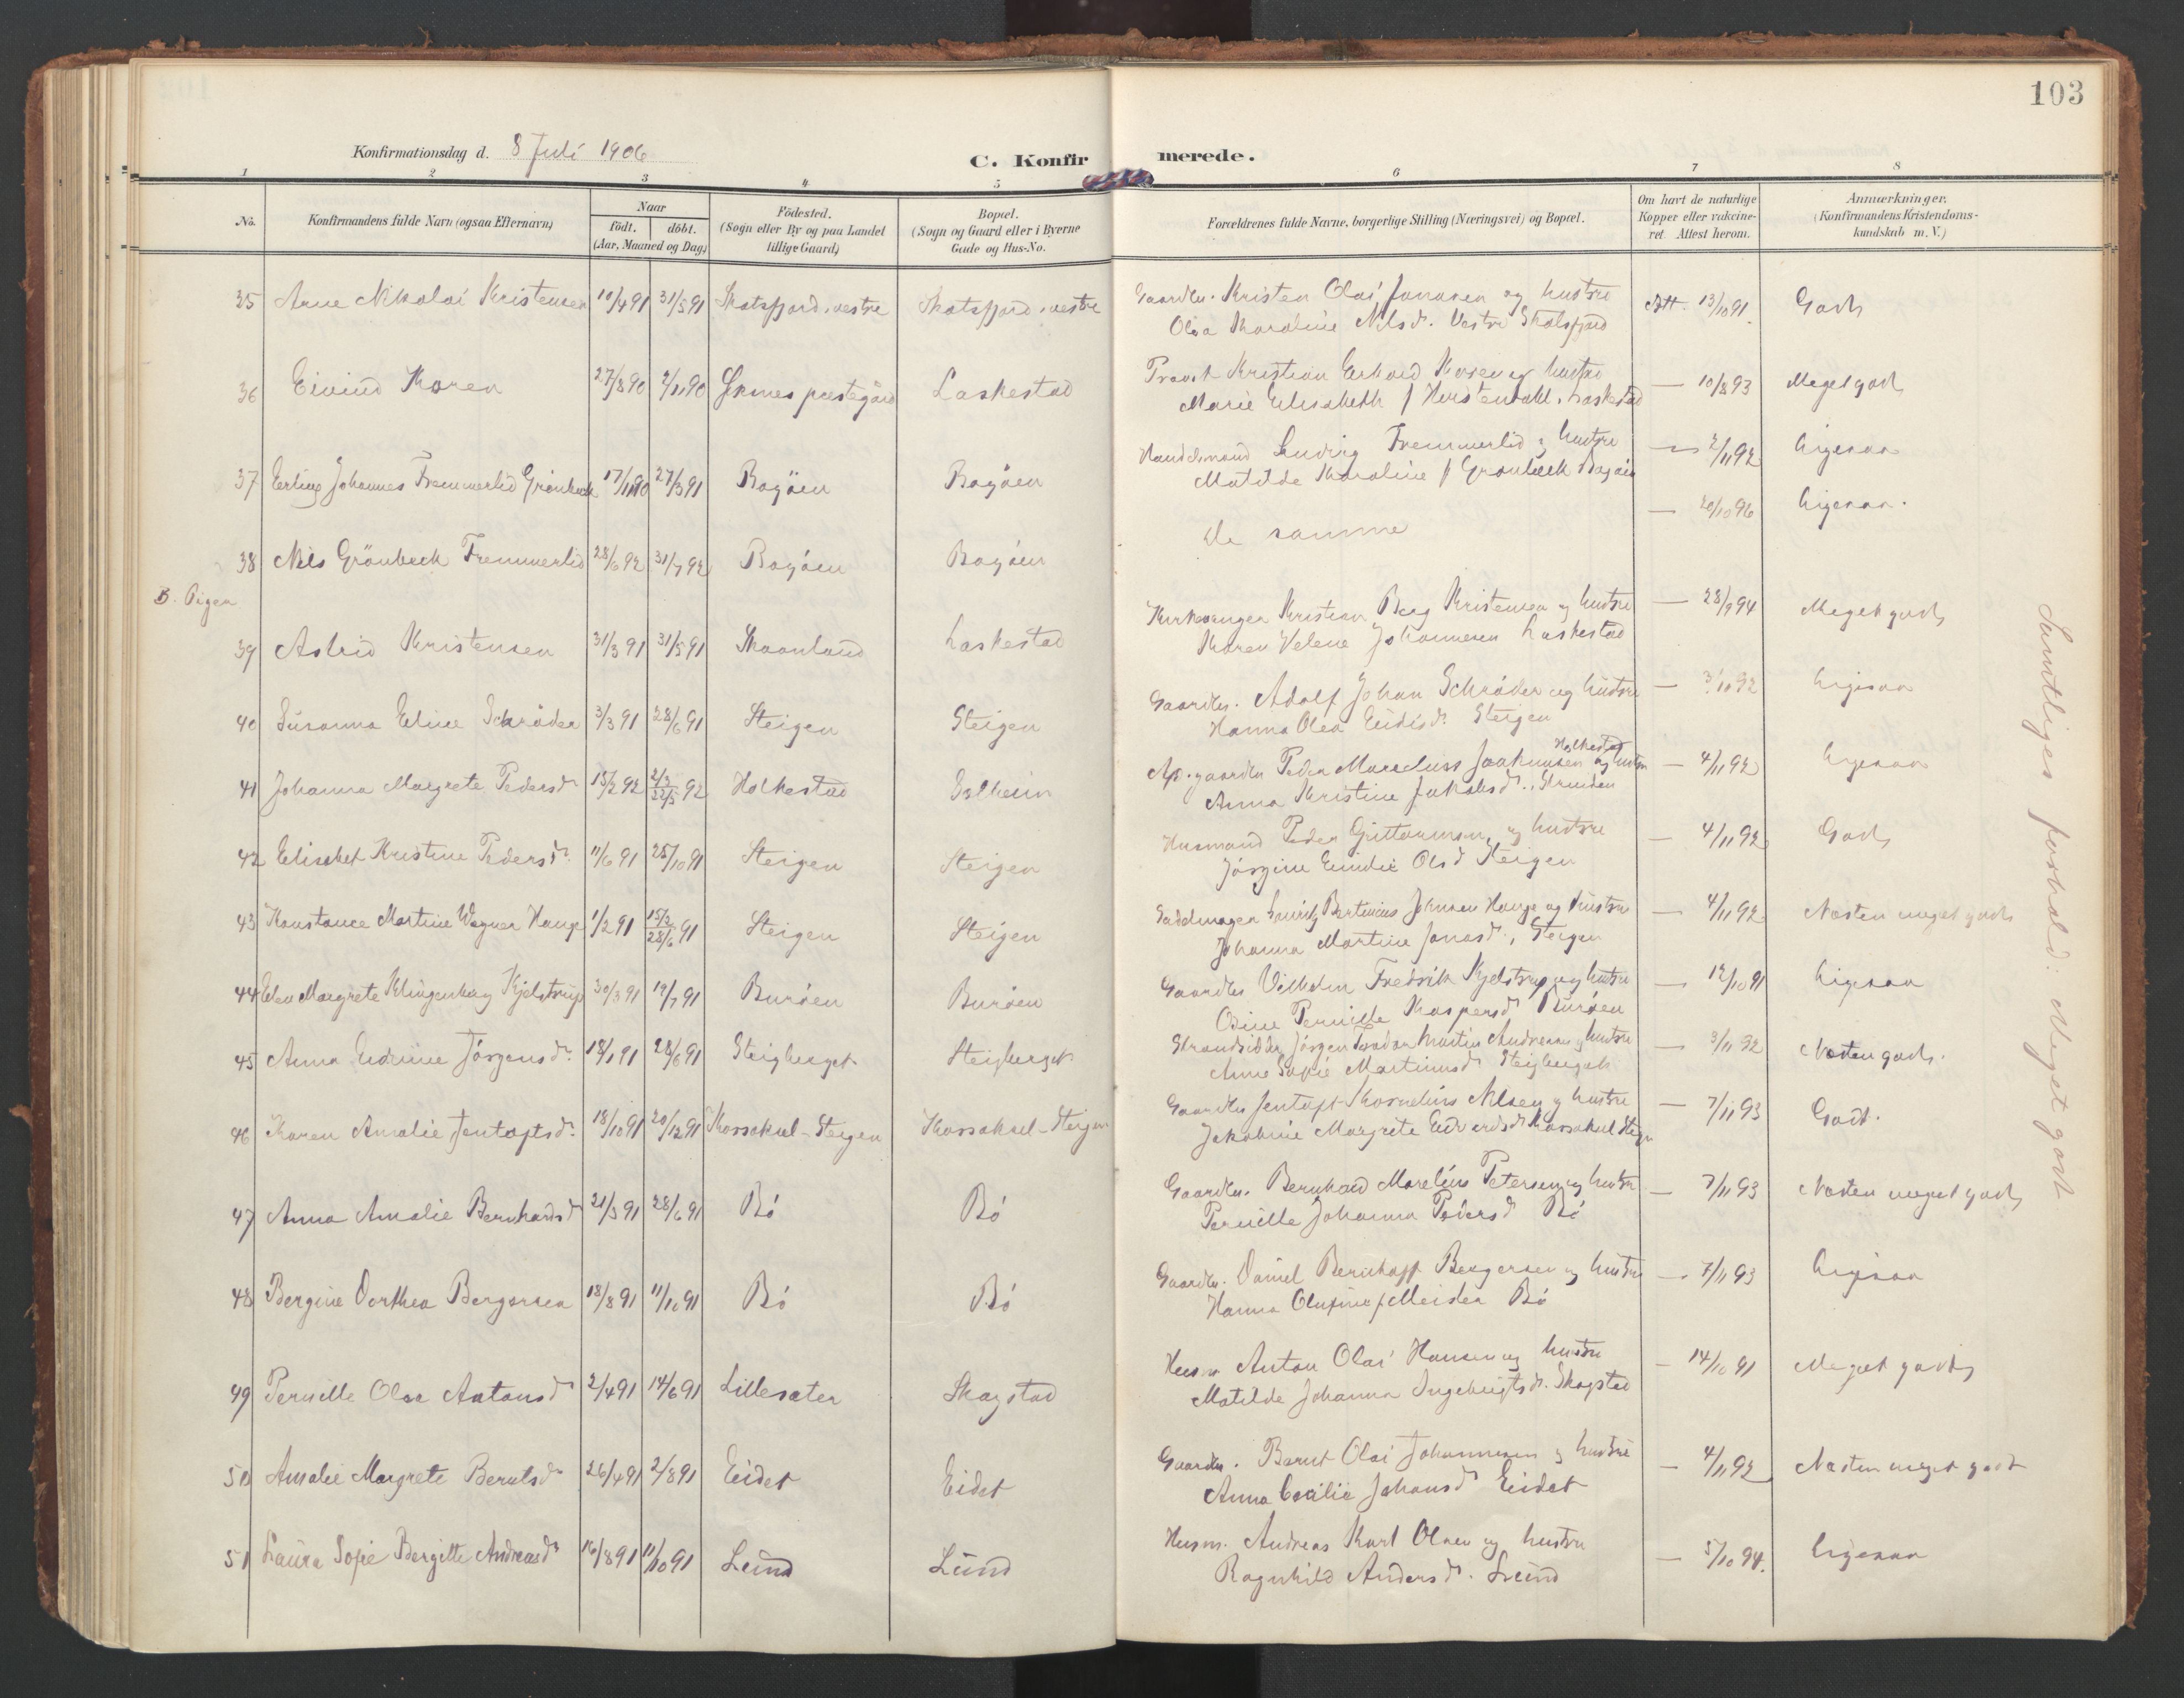 103
Konfirmationsdag d. 8 Juli 1906
C. Konfirmerede.
1 2 3 4 5 6 7 8
No.
Konfirmandens fulde Navn (ogsaa Efternavn)
Naar
födt. döbt.
(Aar, Maaned og Dag.)
Födested.
(Sogn eller By og paa Landet
tillige Gaard)
Bopæl.
(Sogn og Gaard eller i Byerne
Gade og Hus-No.
Forældrenes fulde Navne, borgerlige Stilling (Næringsvei) og Bopæl.
Om havt de naturlige
Kopper eller vakcine-
ret. Attest herom.
Anmærkninger.
(Konfirmandens Kristendoms-
kundskab m. V.)
35 Arne Nikolai Kristensen 10/4 91 31/5 91 Skotsfjord. vestre Skotsfjord. vestre
Gaardbr. Kristen Olai Jonassen og hustru
Olea Karoline Nilsd. Vestre Skotsfjord
Att. 13/10 91. Godt
36 Eivind Koren 27/8 90 2/11 90 præstegård Laskestad
Provst Kristian Koren og hustru
Marie Elisabeth f. Laskestad
— 10/8 93 Meget godt
37 Erling Johannes Fremmerlid Grönbeck 17/11 90 27/3 91 Bogöen Bogöen
Handelsmand Ludvig Fremmerlid og hustru
Matilde Karoline f Grönbeck Bogöen
— 2/11 92 Ligesaa
38 Nils Grönbeck Fremmerlid 28/6 92 31/7 92 Bogöen Bogöen
de samme
— 20/10 96 Ligesaa.
B. Piger
39 Astrid Kristensen 31/3 91 31/5 91 Skaanland Laskestad
Kirkesanger Kristian Berg Kristensen og hustru
Karen Velene Johannesen Laskestad
— 28/9 94 Meget godt
40 Susanna Eline Schröder 3/3 91 28/6 91 Steigen Steigen
Gaardbr. Adolf Johan Schröder og hustru
Hanna Olea Steigen
— 3/10 92 Ligesaa
41 Johanna Margrete Pedersd. 15/2 92 2/3 22/5 92 Holkestad Solheim
gaardbr Peder Marselius Joakimsen Holkestad og hustru
Anna Kristine Jakobsd.
— 4/11 92 Ligesaa
42 Elisebet Kristine Pedersd. 11/6 91 25/10 91 Steigen Steigen
Husmand Peder og hustru
Jörgine Olsd Steigen
— 4/11 92 Godt
43 Konstance Martine Wegner Hauge 1/2 91 15/2 28/6 91 Steigen Steigen
Sadelmager Lauritz Johnsen Hauge og hustru
Johanna Martine Jonasd., Steigen
— 4/11 92 Næsten meget godt
44 Elen Margrete Klingenberg Kjelstrup 30/3 91 19/7 91 Buröen Buröen
Gaardbr Vilhelm Fredrik Kjelstrup og hustru
Pernille Kaspersd Buröen
— 12/10 91 Ligesaa
45 Anna Jörgensd. 18/1 91 28/6 91 Steigberget Steigberget
Strandsidder Jörgen Martin Andreasen og hustru
Anne Sofie Martinusd Steigberget
— 3/11 92 Næsten godt.
46 Karen Amalie Jentoftsd. 18/10 91 20/12 91 Korsaksel-Steigen Korsaksel-Steigen
Gaardbr Jentoft Kornelius Nilsen og hustru
Jakobine Margrete Edvardsd Korsaksel Steigen
— 7/11 93 Godt.
47 Anna Amalie Bernhardsd 21/3 91 28/6 91 Bö Bö
Gaardbr. Bernhard Marelius Petersen og hustru
Pernille Johanna Pedersd Bö
— 7/11 93 Næsten meget godt
48 Bergine Dorthea Bergersen 18/8 91 11/10 91 Bö Bö
Gaardbr. Daniel Bernhoft Bergersen og hustru
Hanna Olufine f. Bö
— 7/11 93 Ligesaa
49 Pernille Olea Antonsd 2/4 91 14/6 91 Lillesæter Skagstad
Husm Anton Olai Hansen og hustru
Matilde Johanna Ingebrigtsd. Skagstad
— 14/10 91 Meget godt
50 Amalie Margrete Berntsd. 26/4 91 2/8 91 Eidet Eidet
Gaardbr. Bernt Olai Johannesen og hustru
Anna Cecilie Johansd Eidet
— 4/11 92 Næsten meget godt
51 Laura Sofie Bergitte Andreasd. 16/8 91 11/10 91 Lund Lund
Husm. Andreas Karl Olsen og hustru
Ragnhild Andersd. Lund
— 5/10 94. Ligesaa
Samtliges forhold: Meget godt